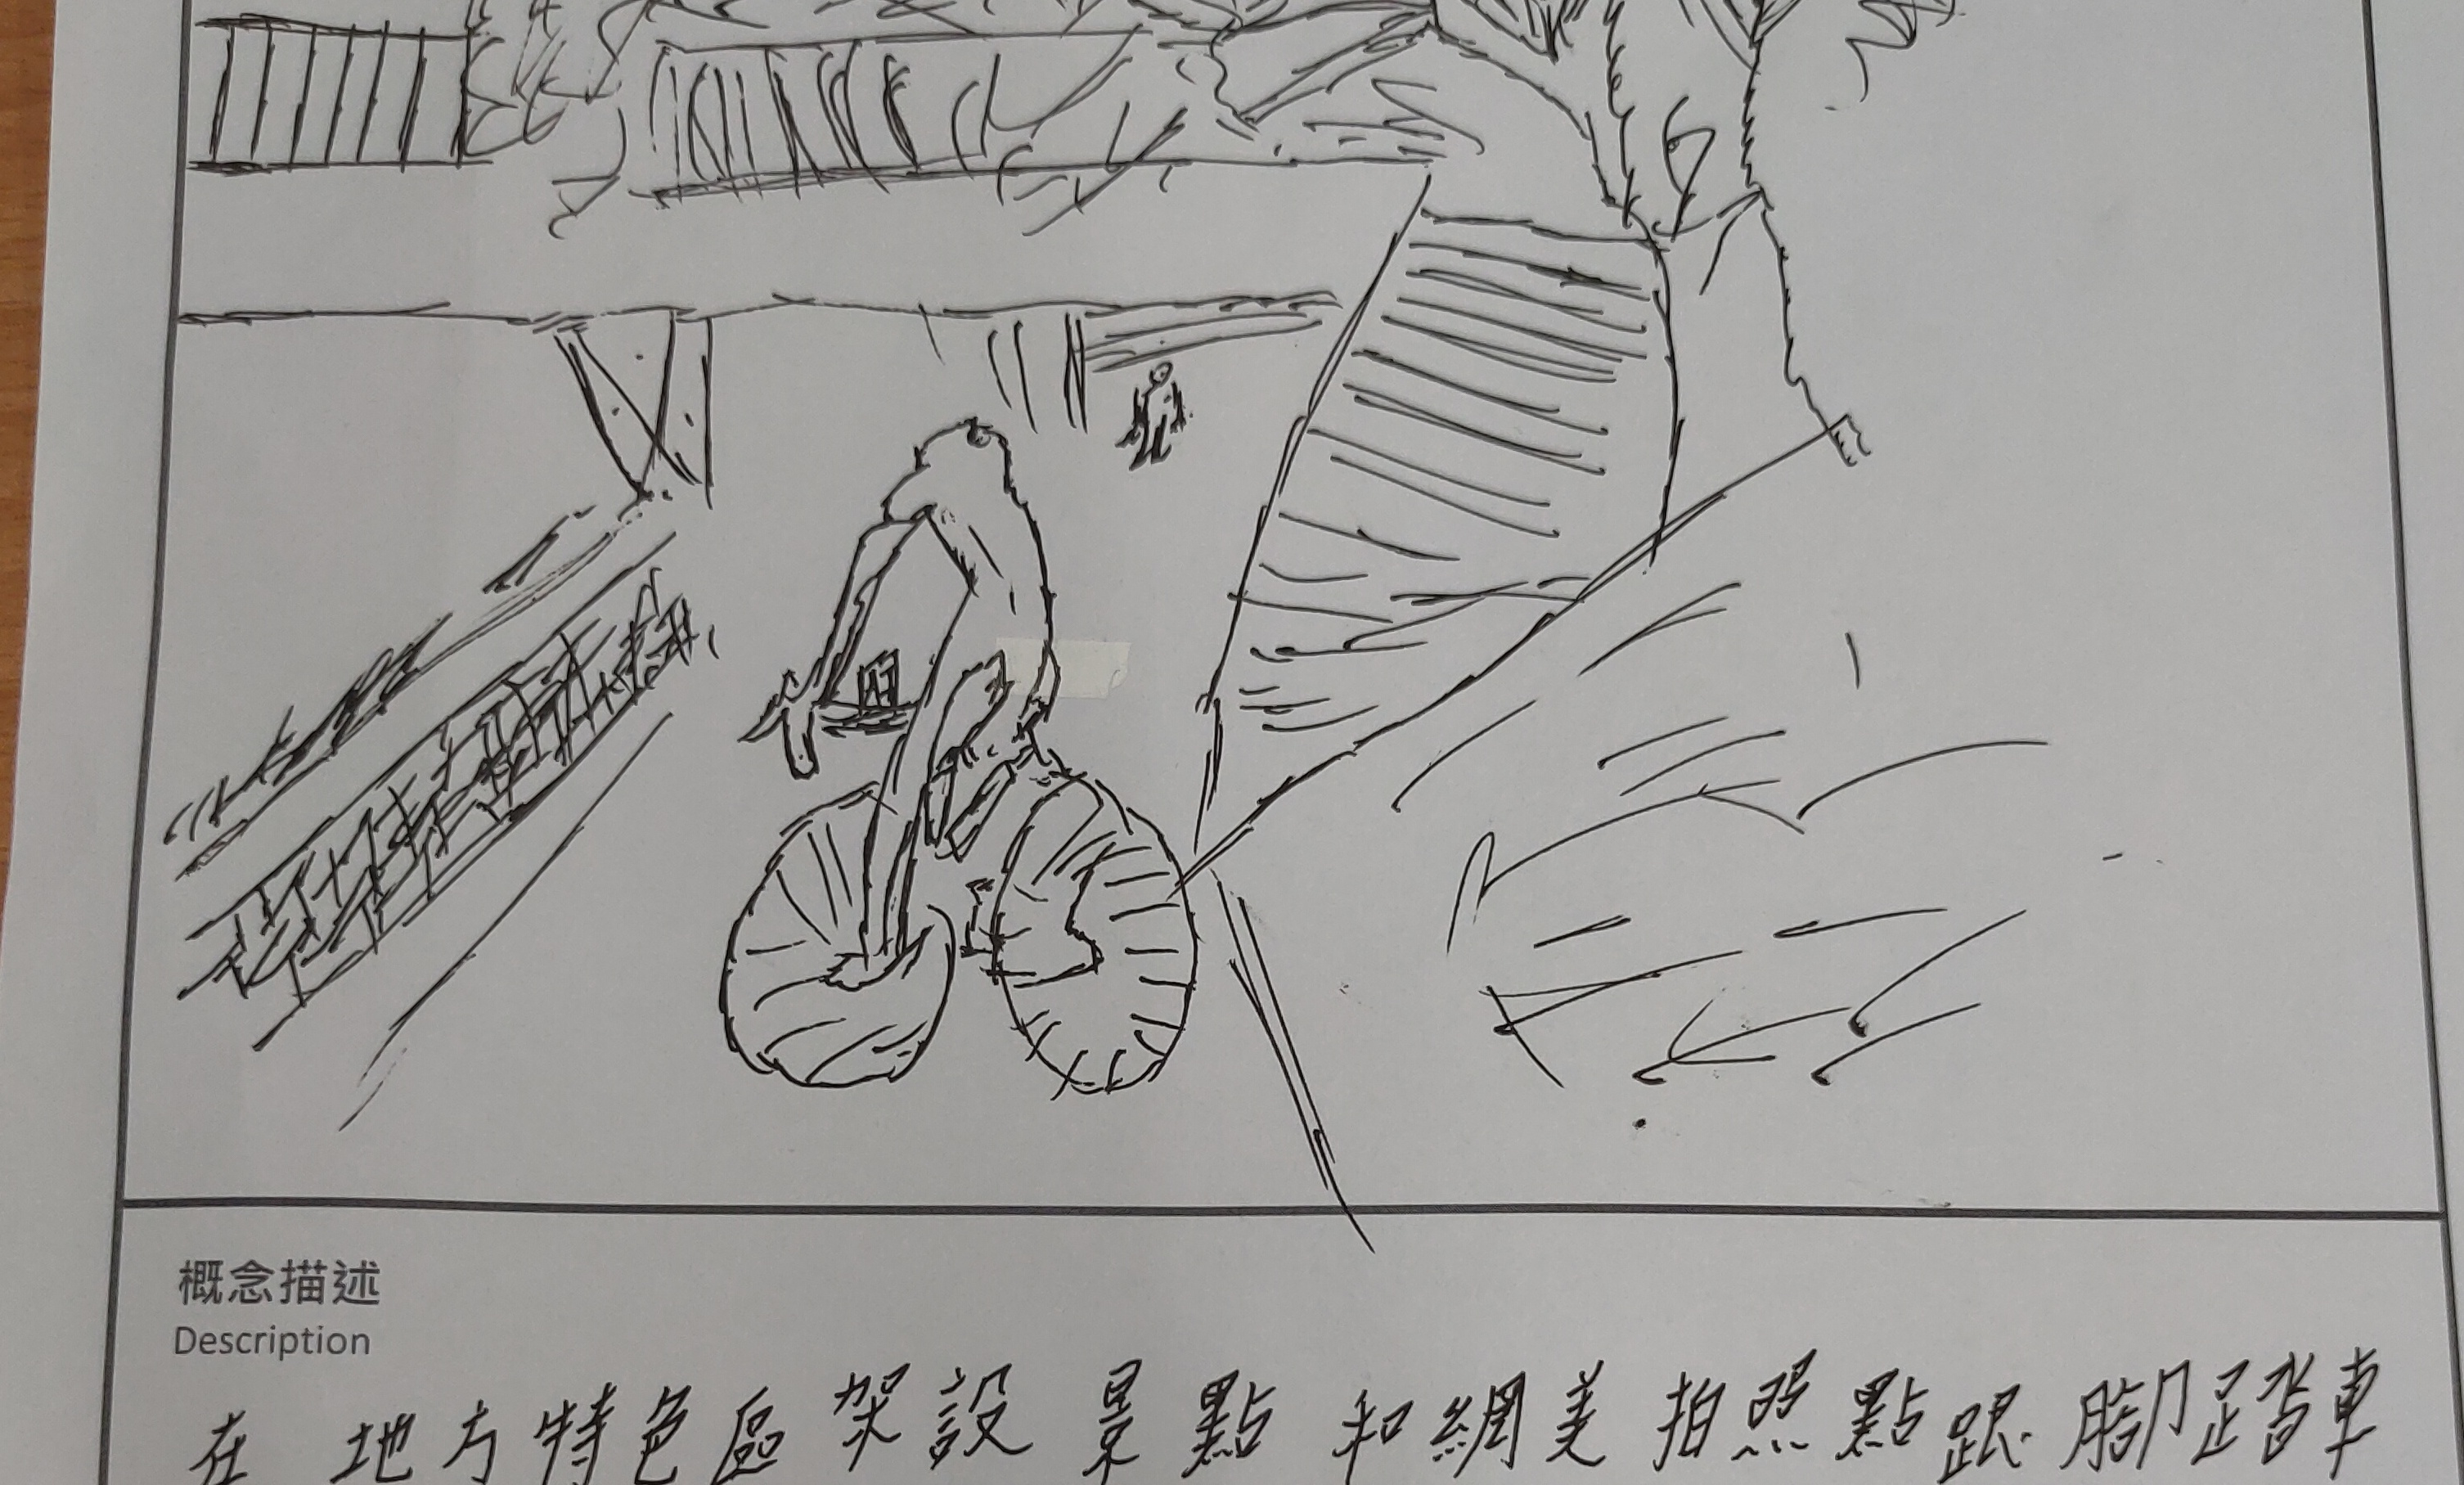 概念描述
Description
在地方特色區架設景點和網美拍照點跟腳踏車